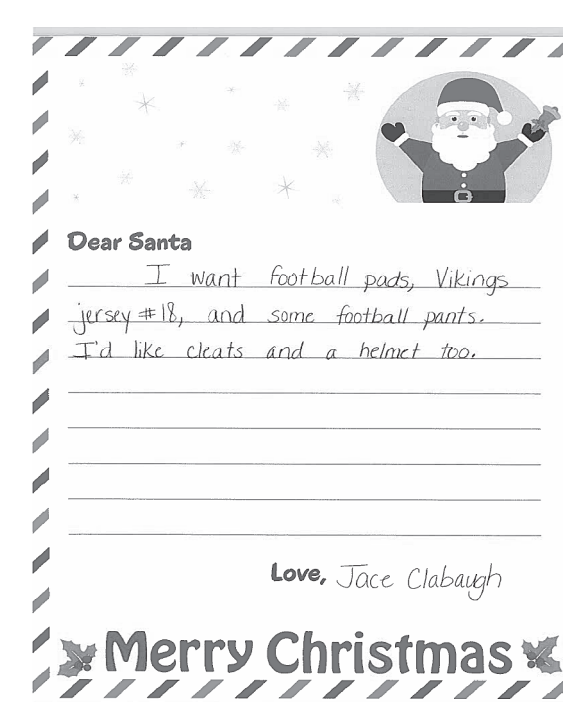 Dear Santa
I want football pads, Vikings
jersey #18, and some football pants.
I'd like cleats and a helmet too.
Love, Jace Clabaugh
Merry Christmas